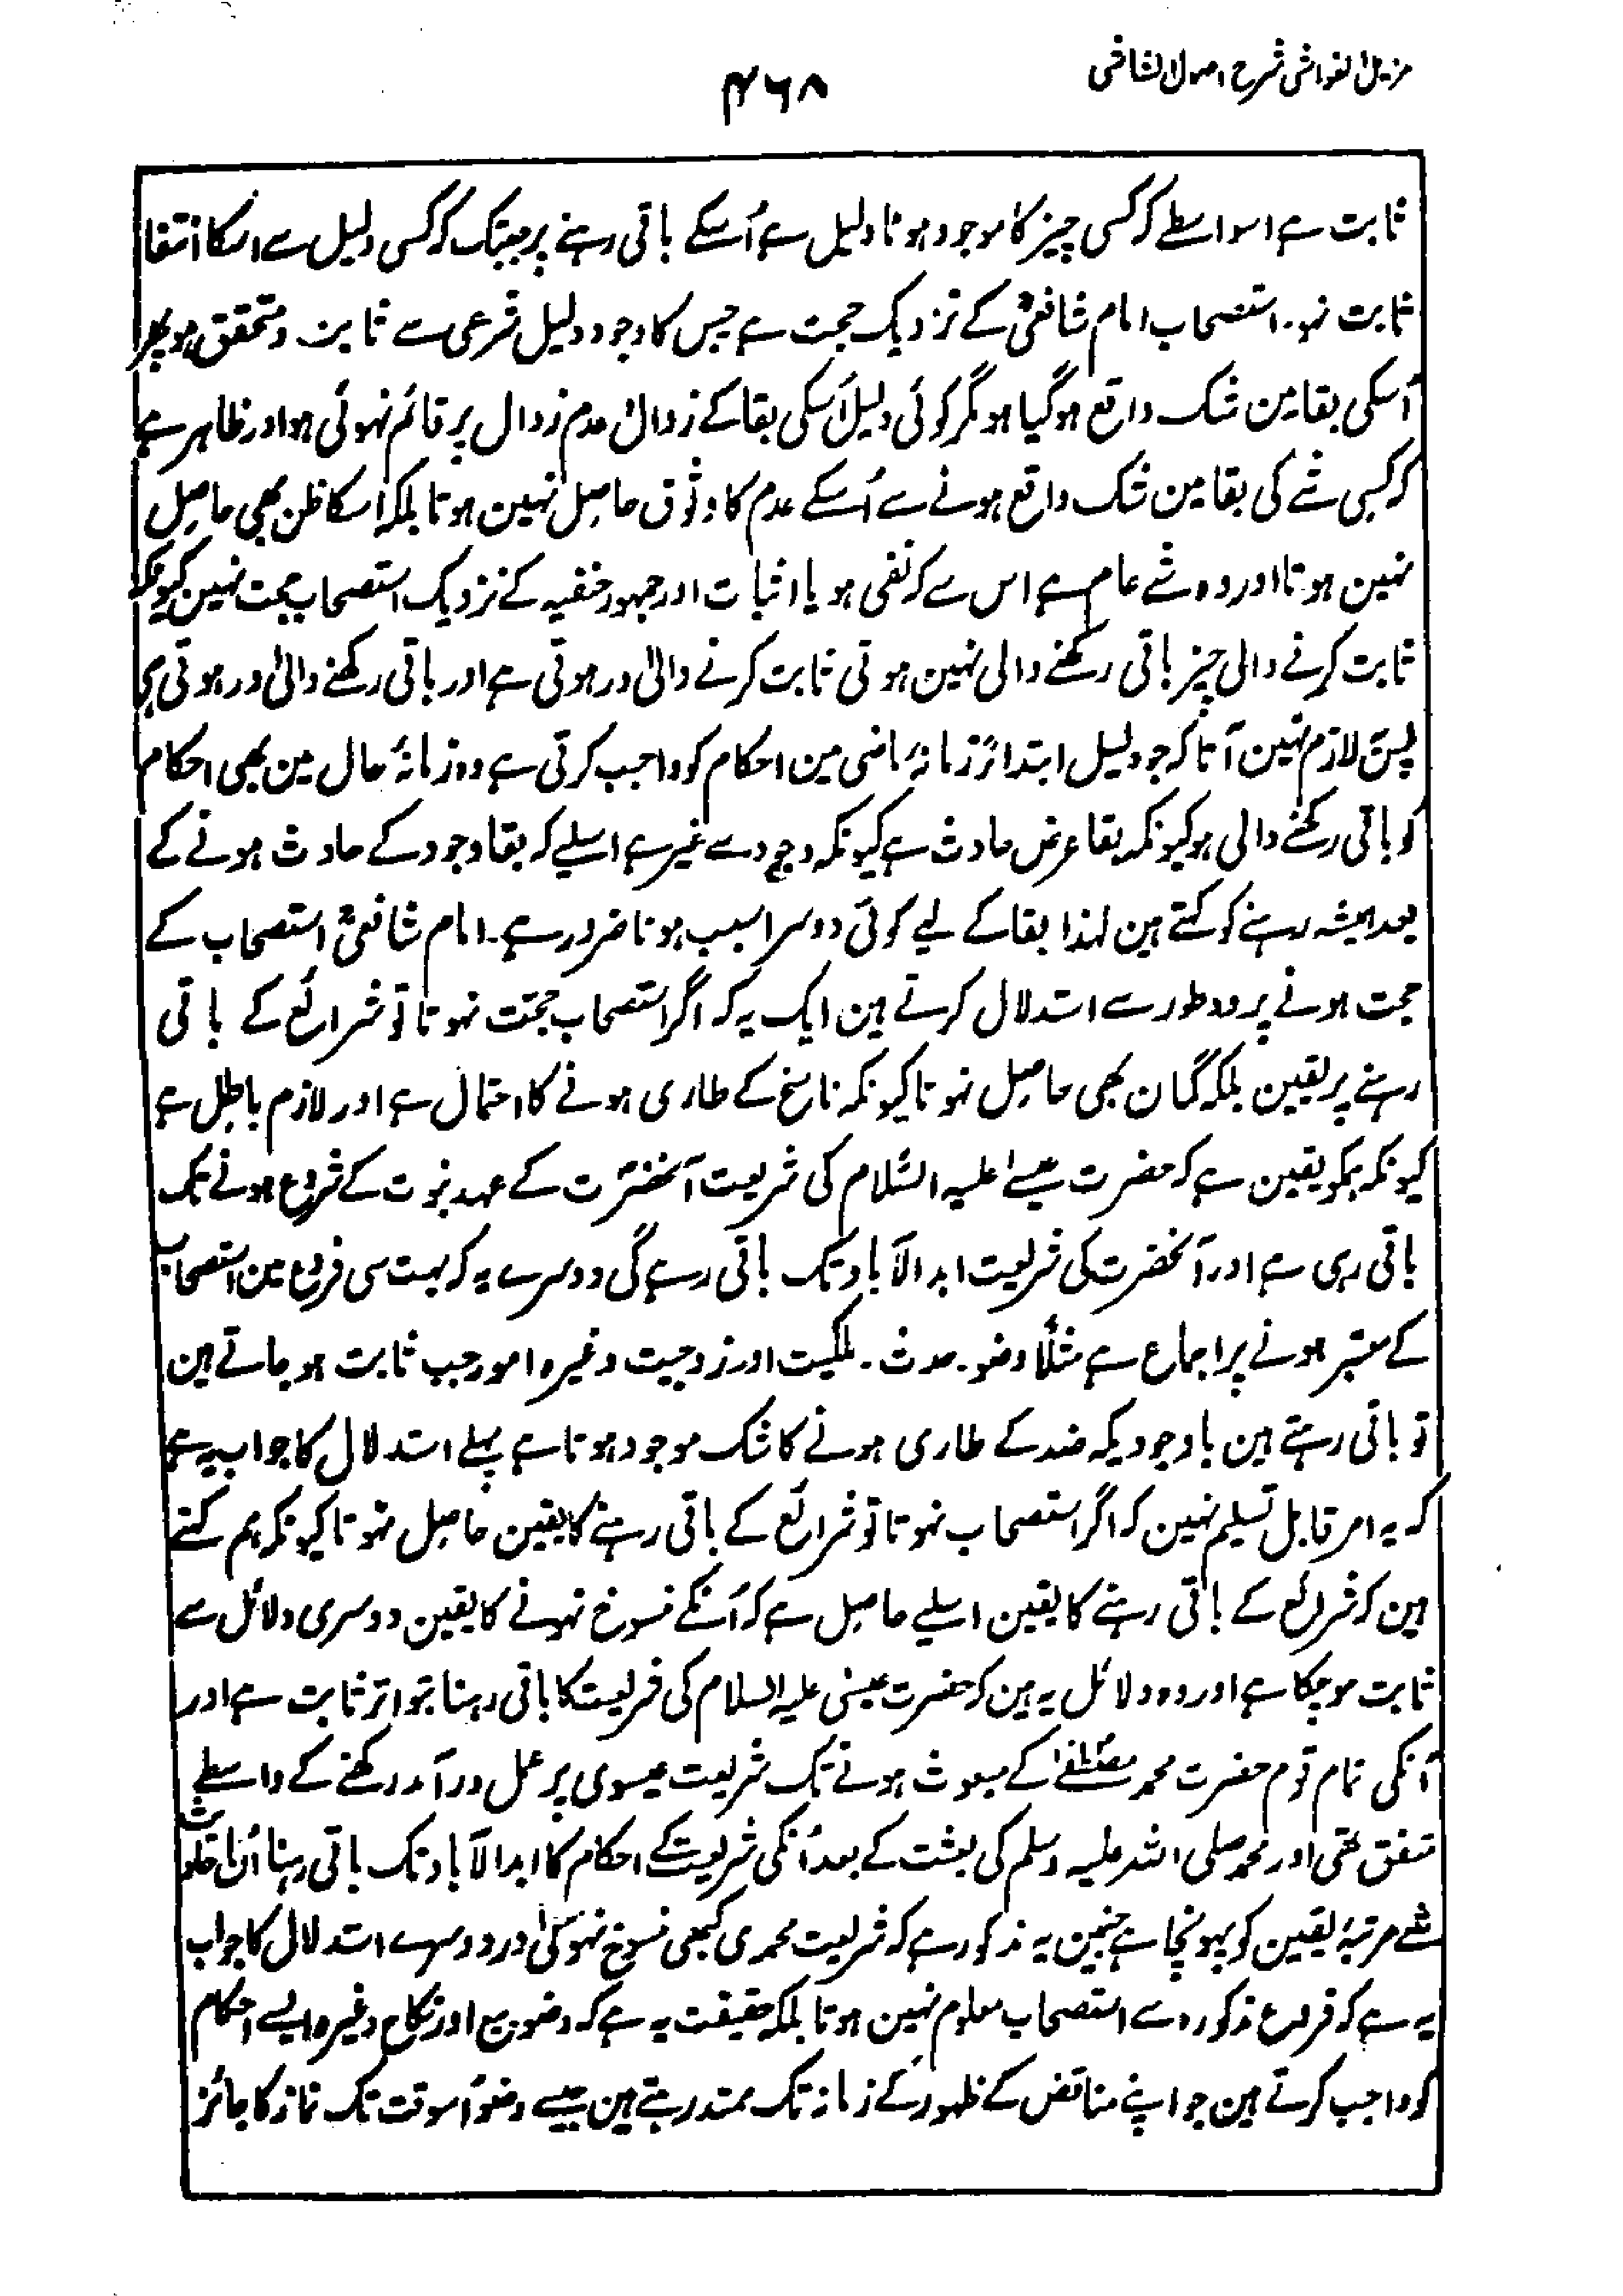 مزیل الغواشی شرح اصول الشاشی
۴۶۸
ثابت ہے اسواسطے کہ کسی چیز کا موجود ہونا دلیل ہے اُسکے باقی رہنے پر جبتک کہ کسی دلیل سے اسکا انتفا
ثابت نہو۔ استصحاب امام شافعیؒ کے نزدیک حجت ہے جس کا وجود دلیل شرعی سے ثابت و متحقق ہو پھر
اُسکی بقا مین شک واقع ہوگیا ہو مگر کوئی دلیل اُسکی بقا کے زوال عدم زوال پر قائم نہوئی ہو اور ظاہر ہے
کہ کسی شے کی بقا مین شک واقع ہونے سے اُسکے عدم کا وثوق حاصل نہین ہوتا بلکہ اسکا ظن بھی حاصل
نہین ہوتا اور وہ شے عام ہے اس سے کہ نفی ہو یا اثبات اور جمہور حنفیہ کے نزدیک استصحاب حجت نہین کیونکہ
ثابت کرنے والی چیز باقی رکھنے والی نہین ہوتی ثابت کرنے والی اور ہوتی ہے اور باقی رکھنے والی اور ہوتی ہی
پس لازم نہین آتا کہ جو دلیل ابتداءً زمانۂ ماضی مین احکام کو واجب کرتی ہے وہ زمانۂ حال مین بھی احکام
کو باقی رکھنے والی ہو کیونکہ بقا عرض حادث ہے کیونکہ وجود سے غیر ہے اسلیے کہ بقا وجود کے حادث ہونے کے
بعد ہمیشہ رہنے کو کہتے ہین لہذا بقا کے لیے کوئی دوسرا سبب ہونا ضرور ہے۔ امام شافعیؒ استصحاب کے
حجت ہونے پر دو طور سے استدلال کرتے ہین ایک یہ کہ اگر استصحاب حجت نہوتا تو شرائع کے باقی
رہنے پر یقین بلکہ گمان بھی حاصل نہوتا کیونکہ ناسخ کے طاری ہونے کا احتمال ہے اور لازم باطل ہے
کیونکہ ہمکو یقین ہے کہ حضرت عیسےٰ علیہ السّلام کی شریعت آنحضرت کے عہد نبوت کے شروع ہونے تک
باقی رہی ہے اور آنحضرت کی شریعت ابد الآباد تک باقی رہے گی دوسرے یہ کہ بہت سی فروع مین استصحاب
کے معتبر ہونے پر اجماع ہے مثلًا وضو۔ حدث۔ ملکیت اور زوجیت وغیرہ امور جب ثابت ہو جاتے ہین
تو باقی رہتے ہین باوجودیکہ ضد کے طاری ہونے کا شک موجود ہوتا ہے پہلے استدلال کا جواب یہ ہے
کہ یہ امر قابل تسلیم نہین کہ اگر استصحاب نہوتا تو شرائع کے باقی رہنے کا یقین حاصل نہوتا کیونکہ ہم کہتے
ہین کہ شرائع کے باقی رہنے کا یقین اسلیے حاصل ہے کہ اُنکے منسوخ نہونے کا یقین دوسری دلائل سے
ثابت ہوچکا ہے اور وہ دلائل یہ ہین کہ حضرت عیسیٰ علیہ السلام کی شریعت کا باقی رہنا بتواتر ثابت ہے اور
اُنکی تمام قوم حضرت محمد مصطفےٰ کے مبعوث ہونے تک شریعت عیسوی پر عمل درآمد رکھنے کے واسطے
متفق تھی اور محمد صلی اللہ علیہ وسلم کی بعثت کے بعد اُنکی شریعت کے احکام کا ابد الآباد تک باقی رہنا اُن احادیث
سے مرتبۂ یقین کو پہونچا ہے جنمین یہ مذکور ہے کہ شریعت محمدی کبھی منسوخ نہوگی اور دوسرے استدلال کا جواب
یہ ہے کہ فروع مذکورہ سے استصحاب معلوم نہین ہوتا بلکہ حقیقت یہ ہے کہ وضو بیع اور نکاح وغیرہ ایسے احکام
کو واجب کرتے ہین جو اپنے مناقض کے ظہور کے زمانہ تک ممتد رہتے ہین جیسے وضو اُسوقت تک نماز کا جائز